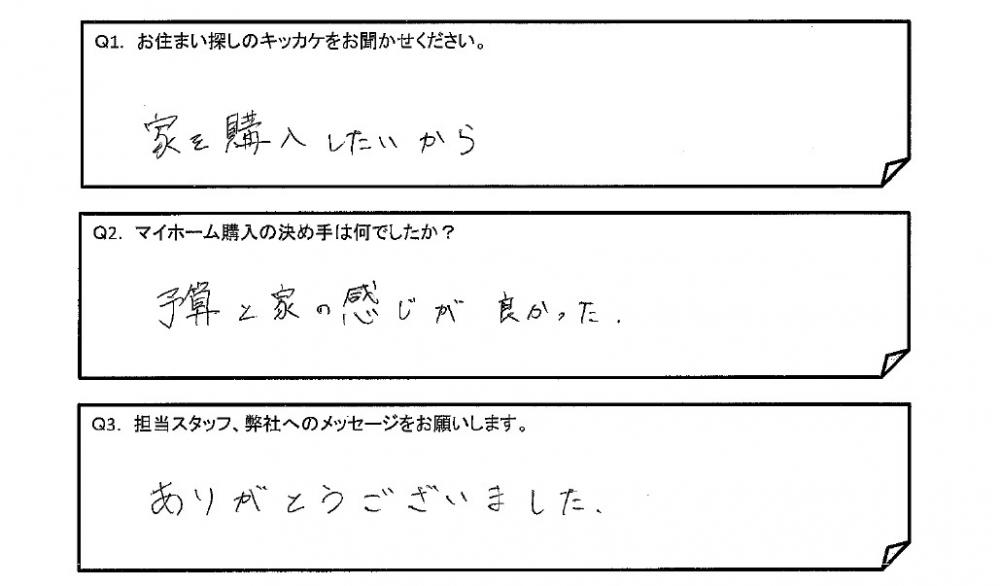 Q1. お住まい探しのキッカケをお聞かせください。
家を購入したいから
Q2. マイホーム購入の決め手は何でしたか？
予算と家の感じが良かった.
Q3. 担当スタッフ、弊社へのメッセージをお願いします。
ありがとうございました.